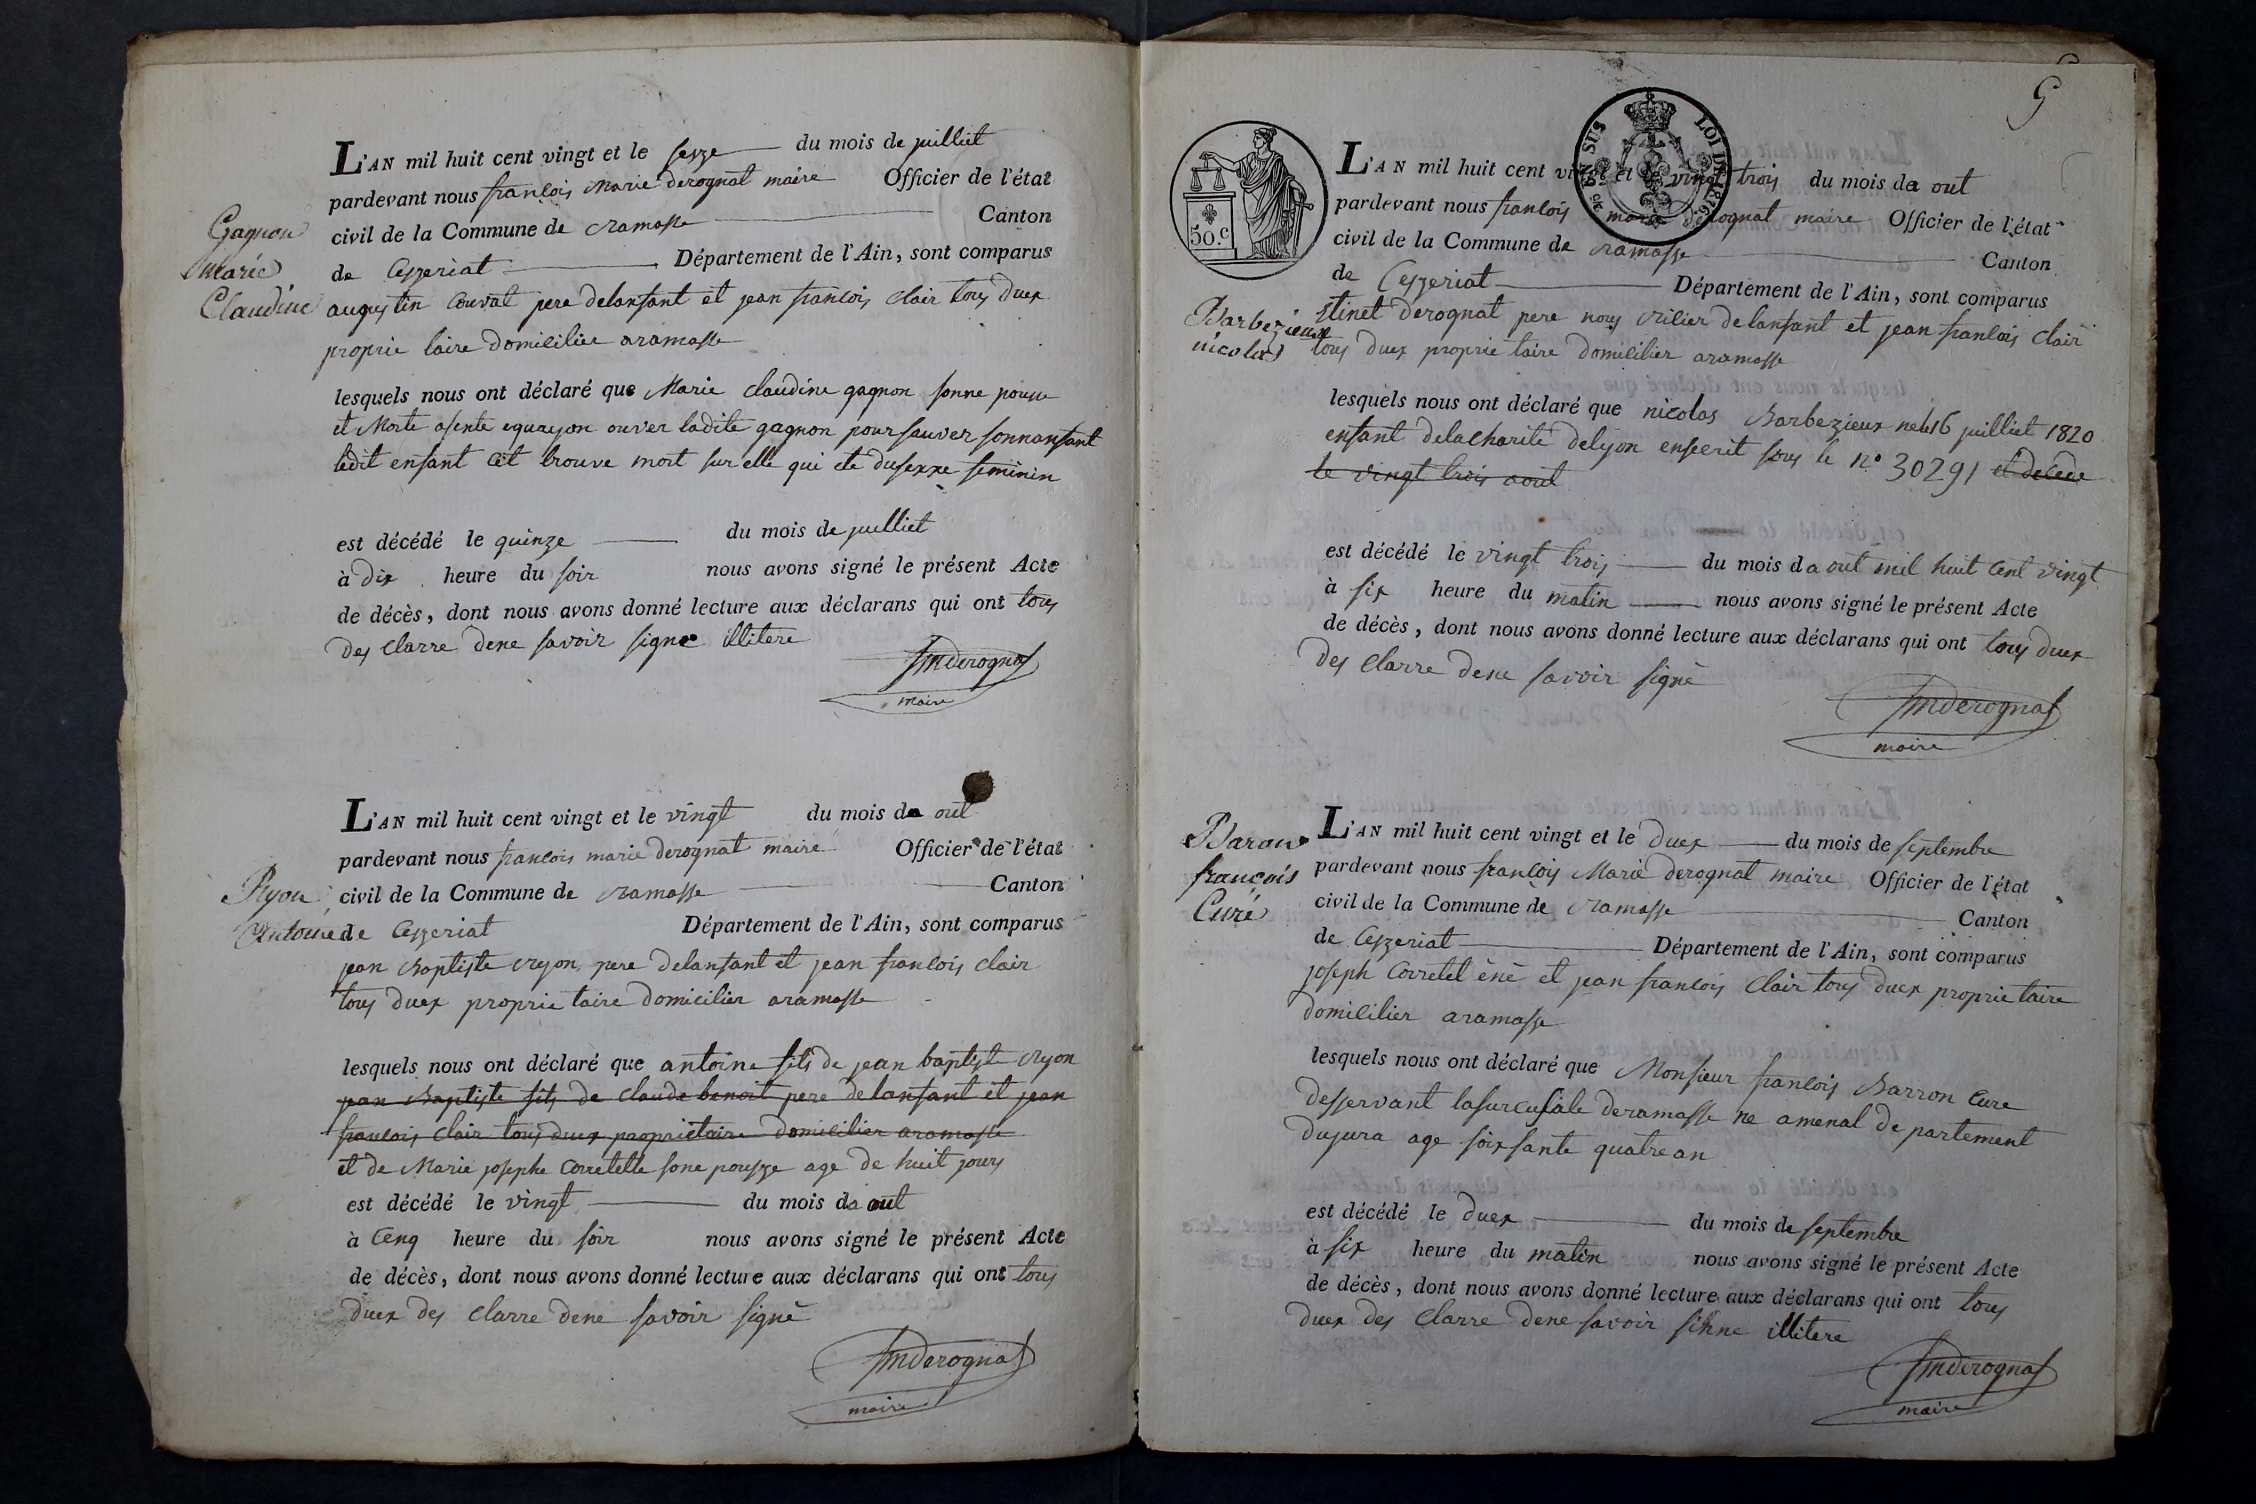 Gagnon
Marie
Claudine
L'AN mil huit cent vingt et le sezze du mois de juilliet
pardevant nous francois Marie derognat maire Officier de l'état
civil de la Commune de ramasse Canton
de Cezzeriat Département de l'Ain, sont comparus
augustin Couvat pere delanfant et jean francois Clair tous duex
proprie taire domicilier aramasse
lesquels nous ont déclaré que Marie claudine gagnon sonne pousse
et Morte ouver ladite gagnon pour sauver sonnanfant
ledit enfant cét trouve mort sur elle qui éte dusexxe feminin
est décédé le quinze du mois de juilliet
à dix heure du soir nous avons signé le présent Acte
de décès, dont nous avons donné lecture aux déclarans qui ont tous
des clarre dene savoir signe illitere
fmderognat
maire
Ryon
Antoine
L'AN mil huit cent vingt et le vingt du mois da out
pardevant nous francois marie derognat maire Officier de l'état
civil de la Commune de ramasse Canton
de Cezzeriat Département de l'Ain, sont comparus
jean Baptiste ryon pere delanfant et jean francois clair
tous duex proprie taire domicilier aramasse
lesquels nous ont déclaré que antoine fils de jean baptiste ryon
jean Baptiste fils de Claude benoit pere delanfant et jean
francois clair tous duex proprietaire domicilier aramasse
et de Marie josephe Corretelle sone pousze age de huit jours
est décédé le vingt du mois da out
à Cenq heure du soir nous avons signé le présent Acte
de décès, dont nous avons donné lecture aux déclarans qui ont tous
duex des clarre dene savoir signé
fmderognat
maire
G
50.c
EN SUS
LOI DE 1816.
L'AN mil huit cent vingt et le vingt trois du mois da out
pardevant nous francois marie derognat maire Officier de l'état
civil de la Commune de ramasse Canton
de Cezzeriat Département de l'Ain, sont comparus
Barbezieux
nicolas
derognat pere nous delanfant et jean francois Clair
tous duex proprie taire domicilier aramasse
lesquels nous ont déclaré que nicolas Barbezieux nele 16 juilliet 1820
enfant delacharité delyon enscrit sous le n° 30291 et decede
le vingt trois aout
est décédé le vingt trois du mois da out mil huit cent vingt
à six heure du matin nous avons signé le présent Acte
de décès, dont nous avons donné lecture aux déclarans qui ont tous duex
des clarre dene savoir signé
fmderognat
maire
Baron
francois
Curé
L'AN mil huit cent vingt et le duex du mois de septembre
pardevant nous francois Marie derognat maire Officier de l'état
civil de la Commune de ramasse Canton
de Cezzeriat Département de l'Ain, sont comparus
joseph Corretel éné et jean francois Clair tous duex proprie taire
domicilier aramasse
lesquels nous ont déclaré que Monsieur francois Barron Cure
desservant lasurcusiale deramasse ne amenal de partement
dujura age soixsante quatre an
est décédé le duex du mois de septembre
à six heure du matin nous avons signé le présent Acte
de décès, dont nous avons donné lecture aux déclarans qui ont tous
duex des clarre dene savoir sihne illitere
fmderognat
maire